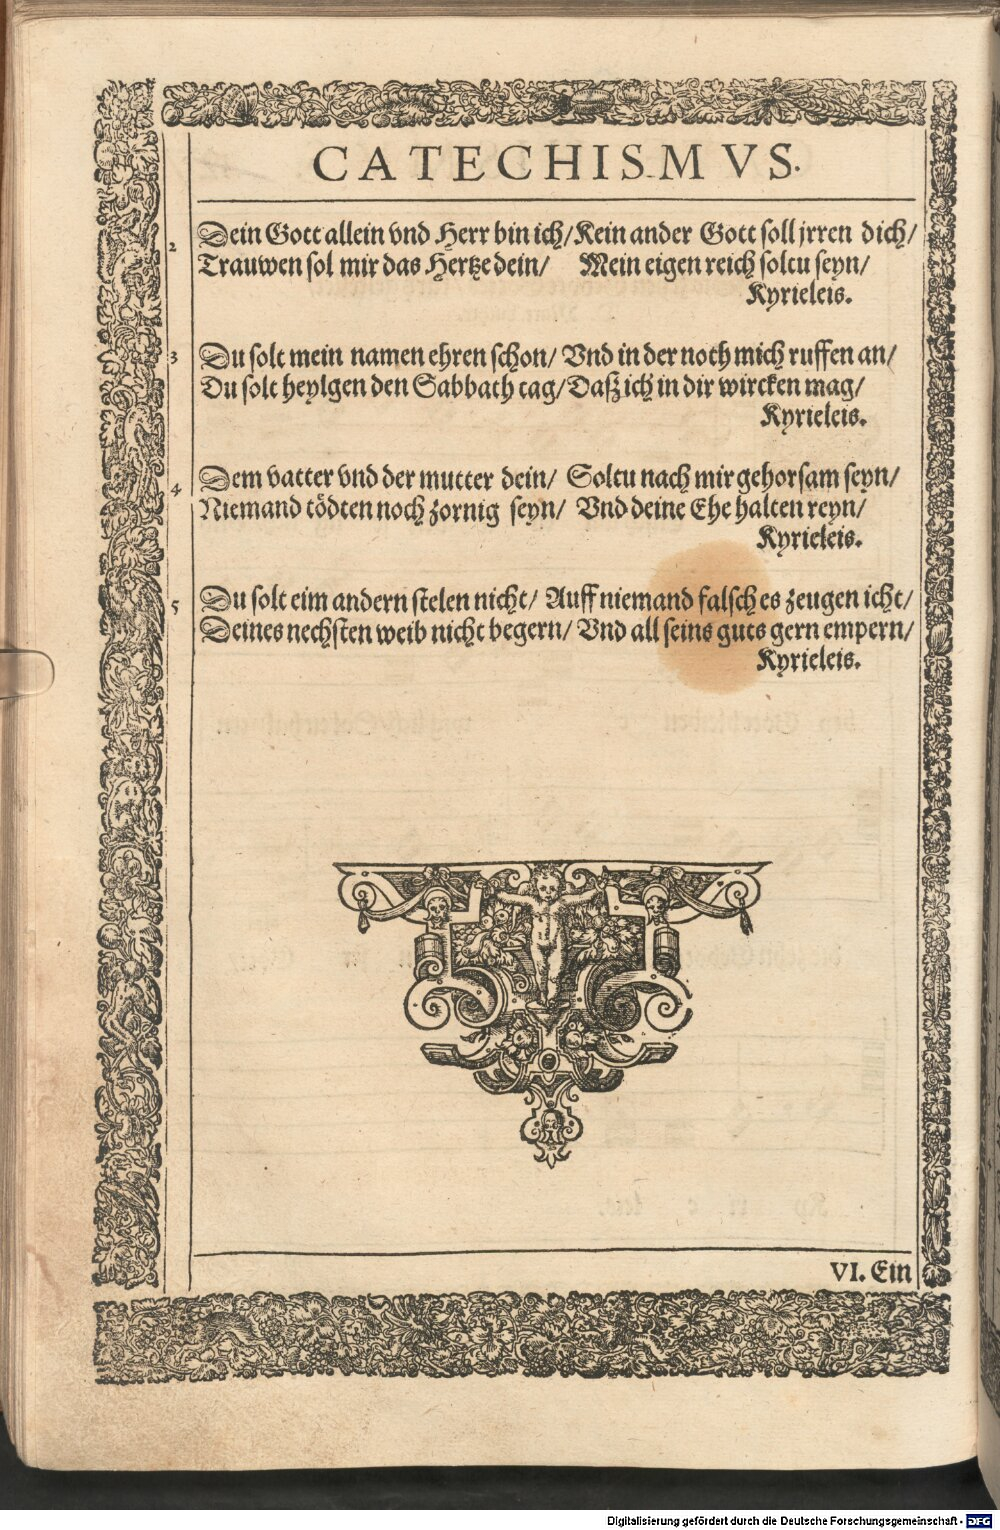 CATECHISMVS.
2 Dein Gott allein vnd Herr bin ich/ Kein ander Gott soll jrren dich/
Trauwen sol mir das Hertze dein/ Mein eigen reich soltu seyn/
Kyrieleis.
3 Du solt mein namen ehren schon/ Vnd in der noth mich ruffen an/
Du solt heylgen den Sabbath tag/ Daß ich in dir wircken mag/
Kyrieleis.
4 Dem vatter vnd der mutter dein/ Soltu nach mir gehorsam seyn/
Niemand tödten noch zornig seyn/ Vnd deine Ehe halten reyn/
Kyrieleis.
5 Du solt eim andern stelen nicht/ Auff niemand falsches zeugen icht/
Deines nechsten weib nicht begern/ Vnd all seins guts gern empern/
Kyrieleis.
VI. Ein
Digitalisierung gefördert durch die Deutsche Forschungsgemeinschaft - DFG